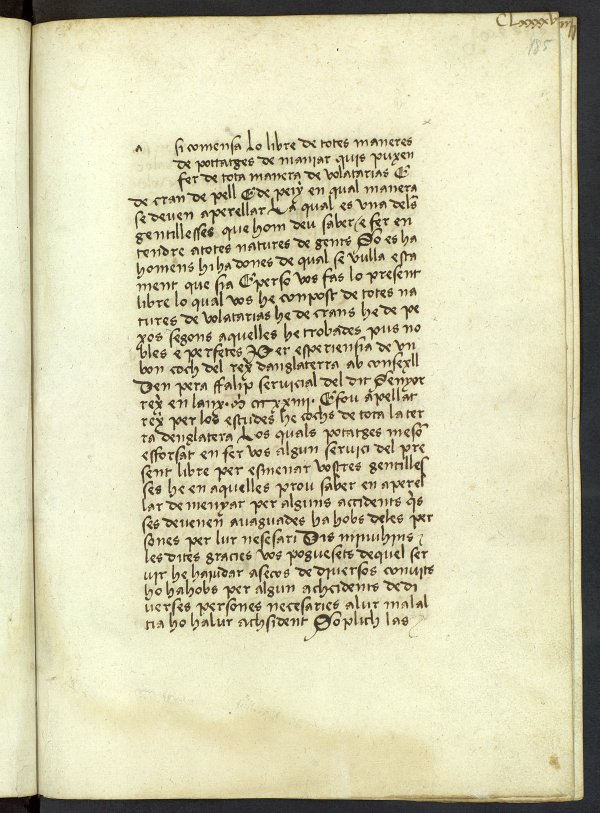 CLxxxviiij
185
A si comensa Lo libre de totes maneres
de pottatges de maniar quis puxen
fer de tota manera de volatarias E
de cran de pell E de peix en qual manera
se deven aperellar La qual es una dels
gentillesses que hom deu saber e fer en
tendre a totes natures de gents So es ha
homens hi ha dones de qual se vulla esta
ment que sia E perso vos fas lo present
libre lo qual vos he conpost de totes na
tures de volatarias he de crans he de pe
xos segons aquelles he trobades pus no
bles e perfetes Per esperiensia de un
bon coch del rey danglaterra ab consexll
Den pera ffalip servicial del dit Senyor
rey en lany M CCC xxiiii E fou apellat
rey per los estudes he cochs de tota la ter
ra denglatera Los quals potatges me so
esforsat en fer vos algun servici del pre
sent libre per esmenar vostres gentilles
ses he en aquelles prou saber en aperel
lar de menyar per alguns accidents qis
ses devenen avaguades ha hobs deles per
sones per lur nesesari Dis mivuhins
les dites gracies vos poguesets dequel ser
vir he haiudar a secos de diversos convits
ho ha hobs per algun achcidents de di
verses persones necesaries a lur malal
tia ho ha lur achsident So plich las